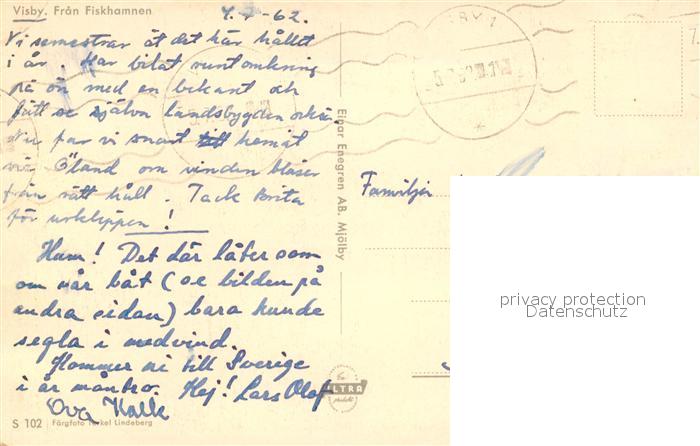 Visby. Från Fiskhamnen
4.7-62.
Vi semestrar åt det här hållet
i år. Har bilat runtomkring
på ön med en bekant och
fått se själva landsbygden också.
Nu far vi snart hemåt
via Öland om vinden blåser
från rätt håll. Tack Brita
för urklippen!
Hum! Det där låter som
om vår båt (se bilden på
andra sidan) bara kunde
segla i medvind.
Kommer ni till Sverige
i år måntro. Hej! Lars Olof
Ova Kalle
S 102 Färgfoto Torkel Lindeberg
Einar Enegren AB. Mjölby
ULTRA
SBY 1
Familjen
privacy protection
Datenschutz